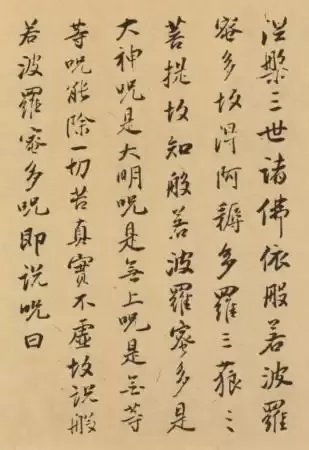 涅槃三世諸佛依般若波羅
蜜多故得阿耨多羅三藐三
菩提故知般若波羅蜜多是
大神呪是大明呪是無上呪是無等
等呪能除一切苦真實不虛故說般
若波羅蜜多呪即說呪曰